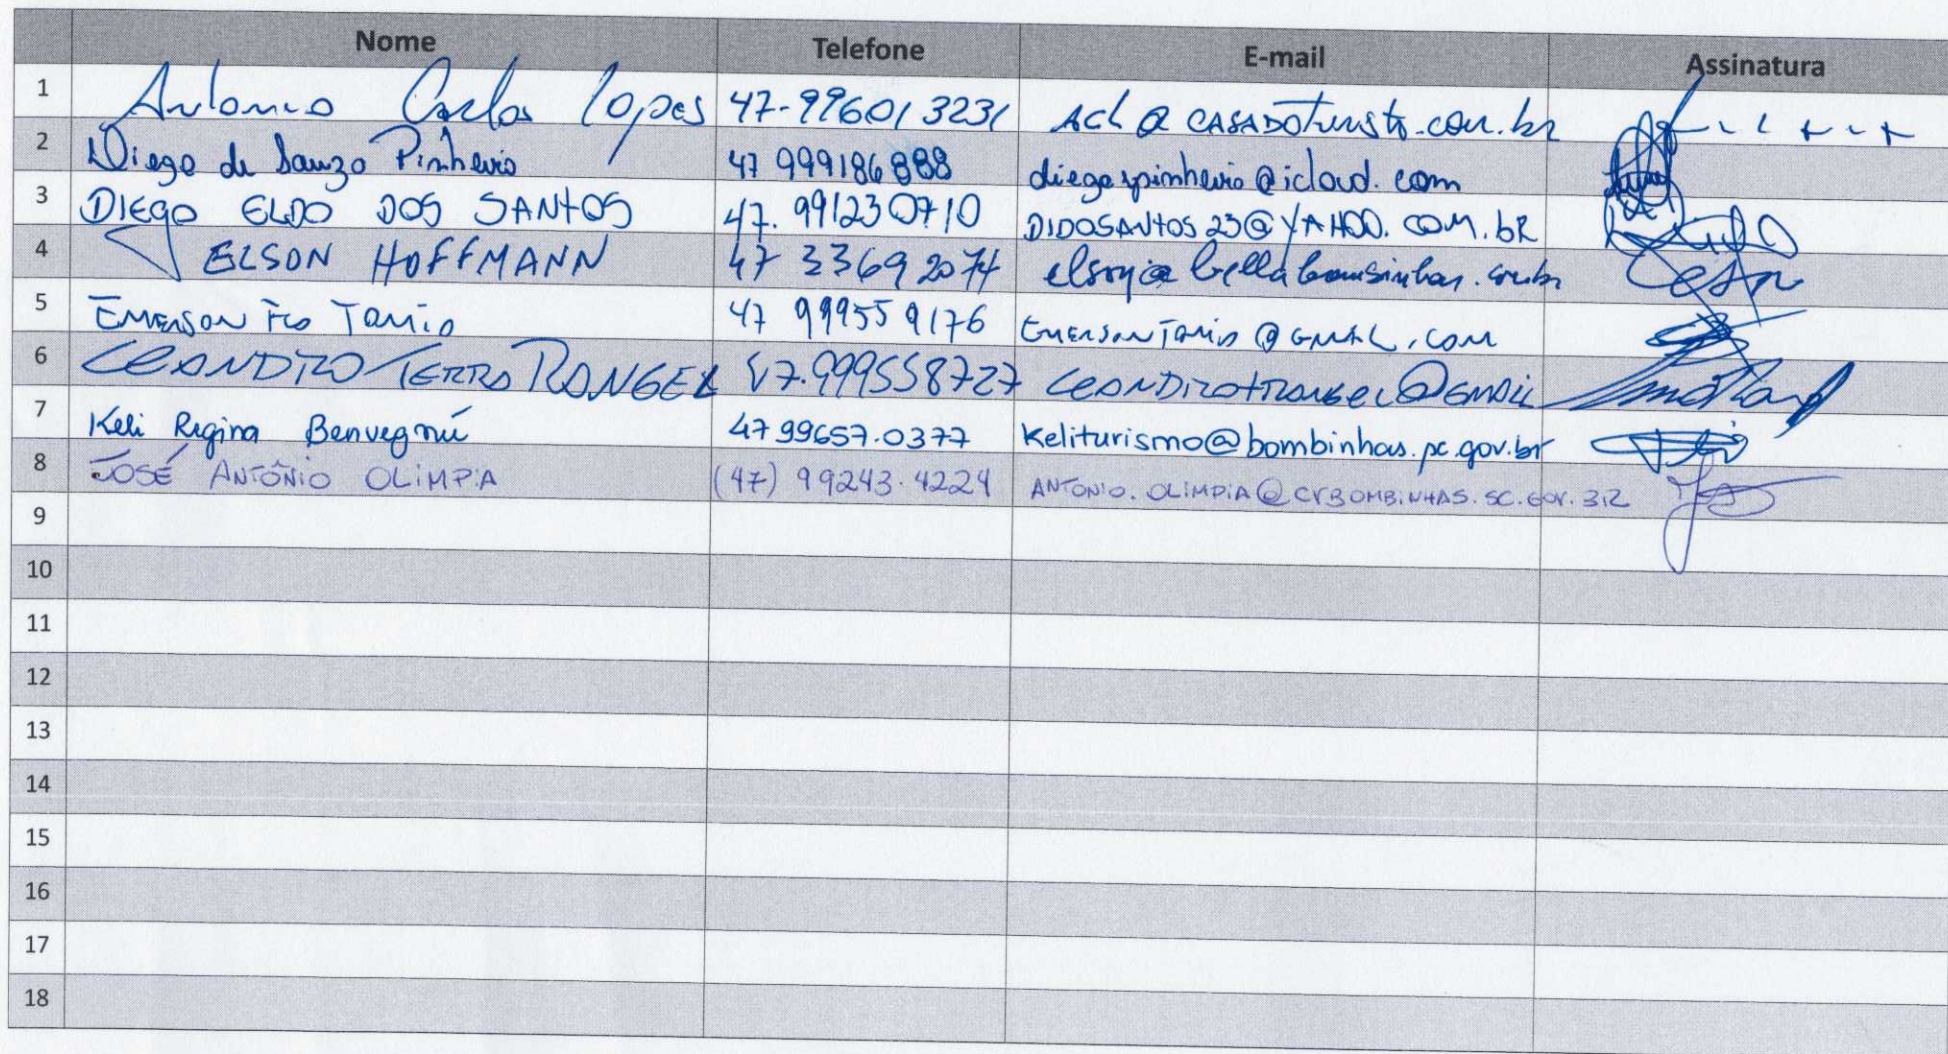 Nome Telefone E-mail Assinatura
1 Antonio Carlos Lopes 47-99601 3231 ACL@CASADOTurista.com.br
2 Diego de Souza Pinheiro 47 999186888 diegospinheiro@icloud.com
3 DIEGO ELDO DOS SANTOS 47. 991230710 DIDOSANTOS23@YAHOO.COM.bR
4 ELSON HOFFMANN 47 3369 2074
5 EMERSON Fco TOMIO 47 99955 9176 EMERSONTOMIO@GMAIL.COM
6 LEANDRO TERRA RANGEL 47.999558727 LEANDROTRANGEL@GMAIL
7 Keli Regina Benvegnú 47 99657.0377 Keliturismo@bombinhas.sc.gov.br
8 JOSÉ ANTÔNIO OLIMPIA (47) 99243.4224 ANTONIO.OLIMPIA@CVBOMBINHAS.SC.GOV.BR
9
10
11
12
13
14
15
16
17
18